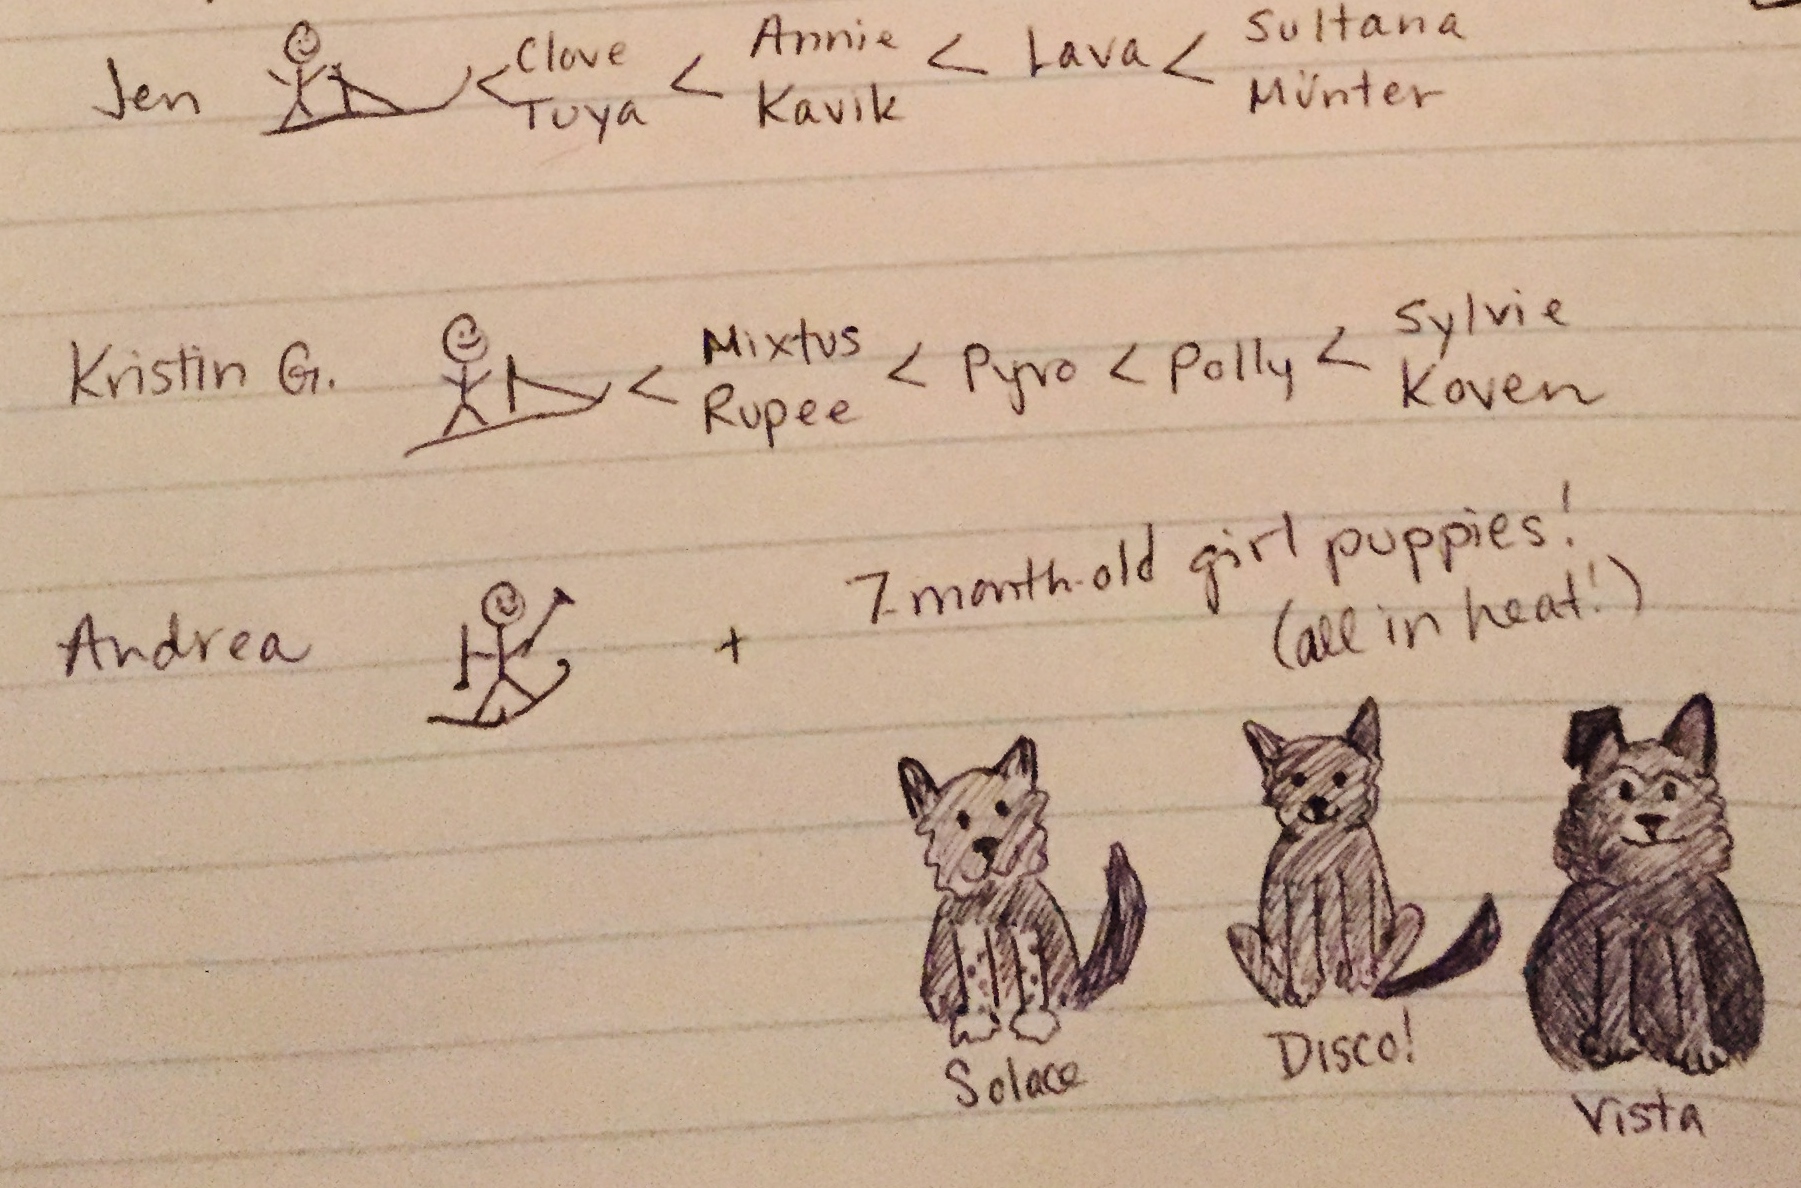 Jen < Clove < Annie < Lava < Sultana
Tuya Kavik Münter
Kristin G. < Mixtus < Pyro < Polly < Sylvie
Rupee Koven
Andrea + 7-month-old girl puppies!
(all in heat!)
Solace Disco! Vista